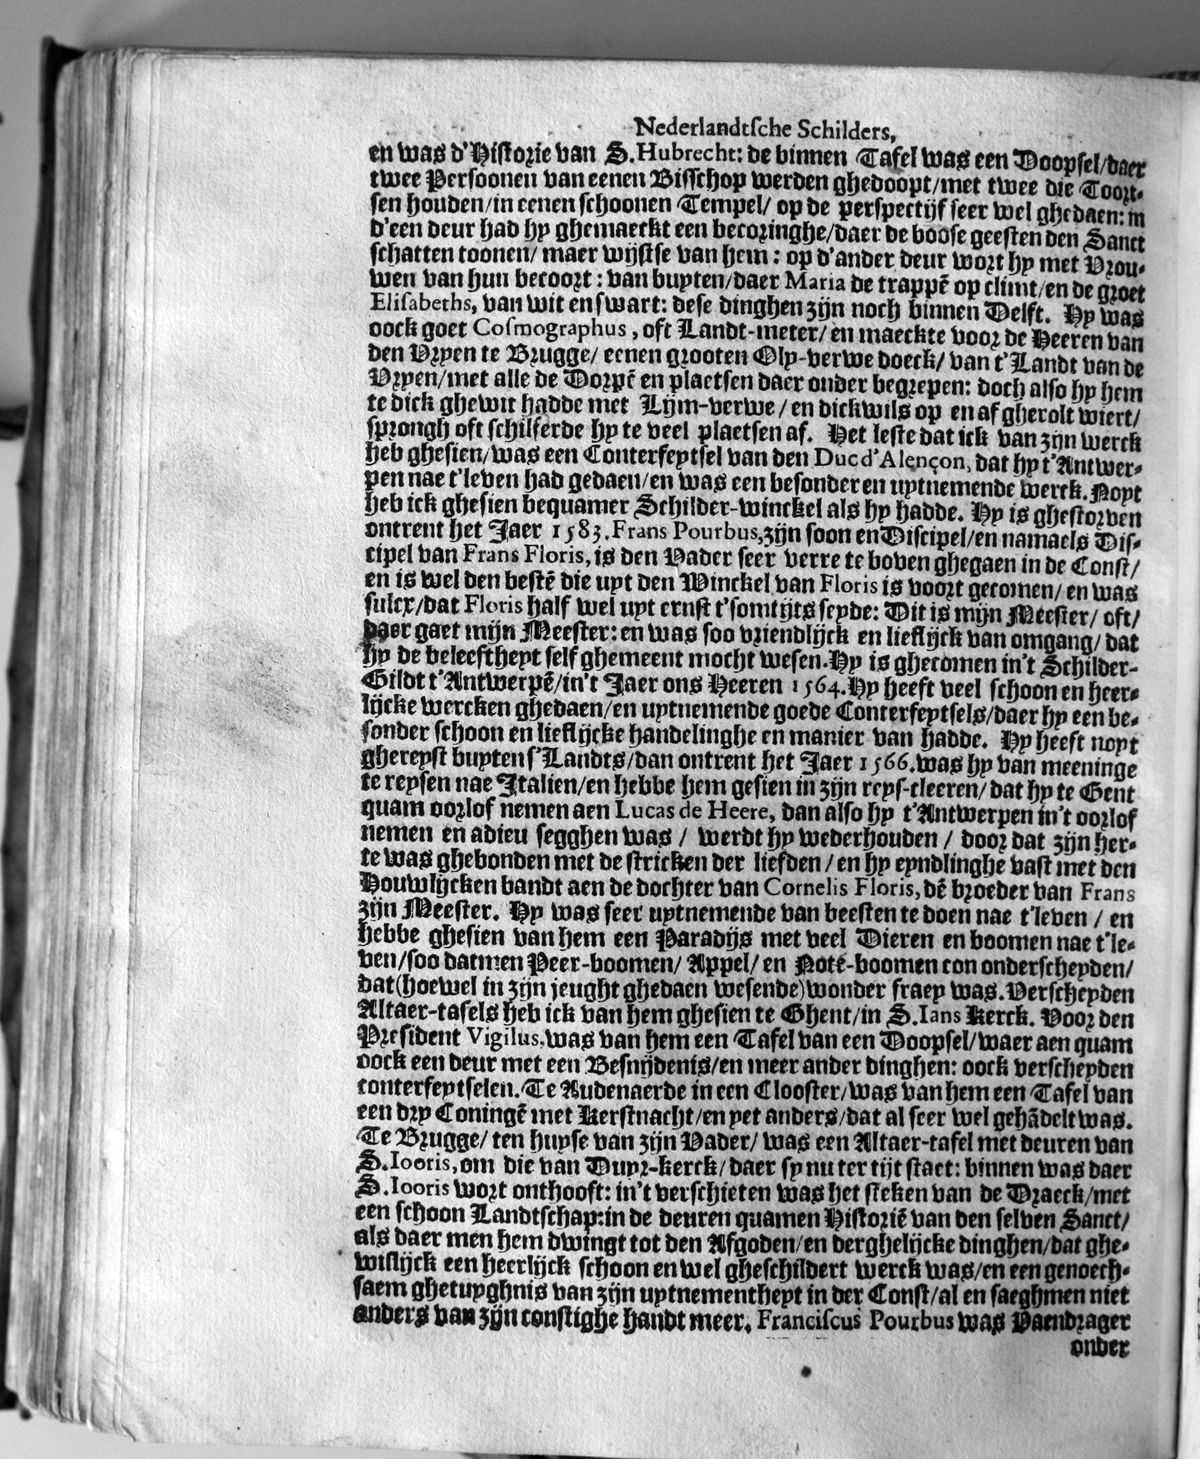 Nederlandtsche Schilders,
en was d'Historie van S. Hubrecht: de binnen Tafel was een Doopsel/daer
twee Persoonen van eenen Bisschop werden ghedoopt/met twee die Toort-
sen houden/in eenen schoonen Tempel/ op de perspectijf seer wel ghedaen: in
d'een deur had hy ghemaeckt een becoringhe/daer de boose geesten den Sanct
schatten toonen/ maer wijstse van hem: op d'ander deur wort hy met Vrou-
wen van hun becoort: van buyten/daer Maria de trappē op climt/en de groet
Elisabeths, van wit en swart: dese dinghen zijn noch binnen Delft. Hy was
oock goet Cosmographus, oft Landt-meter/ en maeckte voor de Heeren van
den Vryen te Brugge/ eenen grooten Oly-verwe doeck/ van t'Landt van de
Vryen/met alle de Dorpē en plaetsen daer onder begrepen: doch also hy hem
te dick ghewit hadde met Lijm-verwe/ en dickwils op en af gherolt wiert/
sprongh oft schilferde hy te veel plaetsen af. Het leste dat ick van zijn werck
heb ghesien/was een Conterfeytsel van den Duc d'Alençon, dat hy t'Antwer-
pen nae t'leven had gedaen/en was een besonder en uytnemende werck. Noyt
heb ick ghesien bequamer Schilder-winckel als hy hadde. Hy is ghestorven
ontrent het Jaer 1583. Frans Pourbus, zijn soon en Discipel/en namaels Dis-
cipel van Frans Floris, is den Vader seer verre te boven ghegaen in de Const/
en is wel den bestē die uyt den Winckel van Floris is voort gecomen/ en was
sulcx/dat Floris half wel uyt ernst t'somtijts seyde: Dit is mijn Meester/ oft/
daer gaet mijn Meester: en was soo vriendlijck en lieflijck van omgang/ dat
hy de beleeftheyt self ghemeent mocht wesen. Hy is ghecomen in't Schilder-
Gildt t'Antwerpē/in't Jaer ons Heeren 1564. Hy heeft veel schoon en heer-
lijcke wercken ghedaen/en uytnemende goede Conterfeytsels/daer hy een be-
sonder schoon en lieflijcke handelinghe en manier van hadde. Hy heeft noyt
ghereyst buyten s'Landts/dan ontrent het Jaer 1566. was hy van meeninge
te reysen nae Italien/en hebbe hem gesien in zijn reys-cleeren/ dat hy te Gent
quam oorlof nemen aen Lucas de Heere, dan also hy t'Antwerpen in't oorlof
nemen en adieu segghen was/ werdt hy wederhouden/ door dat zijn her-
te was ghebonden met de stricken der liefden/ en hy eyndlinghe vast met den
Houwlijcken bandt aen de dochter van Cornelis Floris, dē broeder van Frans
zijn Meester. Hy was seer uytnemende van beesten te doen nae t'leven/ en
hebbe ghesien van hem een Paradijs met veel Dieren en boomen nae t'le-
ven/soo datmen Peer-boomen/ Appel/ en Notē-boomen con onderscheyden/
dat (hoewel in zijn jeught ghedaen wesende) wonder fraey was. Verscheyden
Altaer-tafels heb ick van hem ghesien te Ghent/in S. Ians Kerck. Voor den
President Vigilus, was van hem een Tafel van een Doopsel/waer aen quam
oock een deur met een Besnijdenis/en meer ander dinghen: oock verscheyden
conterfeytselen. Te Audenaerde in een Clooster/was van hem een Tafel van
een dry Coningē met Kerstnacht/en yet anders/dat al seer wel gehādelt was.
Te Brugge/ ten huyse van zijn Vader/ was een Altaer-tafel met deuren van
S. Iooris, om die van Duyr-kerck/daer sy nu ter tijt staet: binnen was daer
S. Iooris wort onthooft: in't verschieten was het steken van de Draeck/met
een schoon Landtschap: in de deuren quamen Historiē van den selven Sanct/
als daer men hem dwingt tot den Afgoden/en derghelijcke dinghen/dat ghe-
wislijck een heerlijck schoon en wel gheschildert werck was/en een genoech-
saem ghetuyghnis van zijn uytnementheyt in der Const/al en saeghmen niet
anders van zijn constighe handt meer. Franciscus Pourbus was Vaendrager
onder